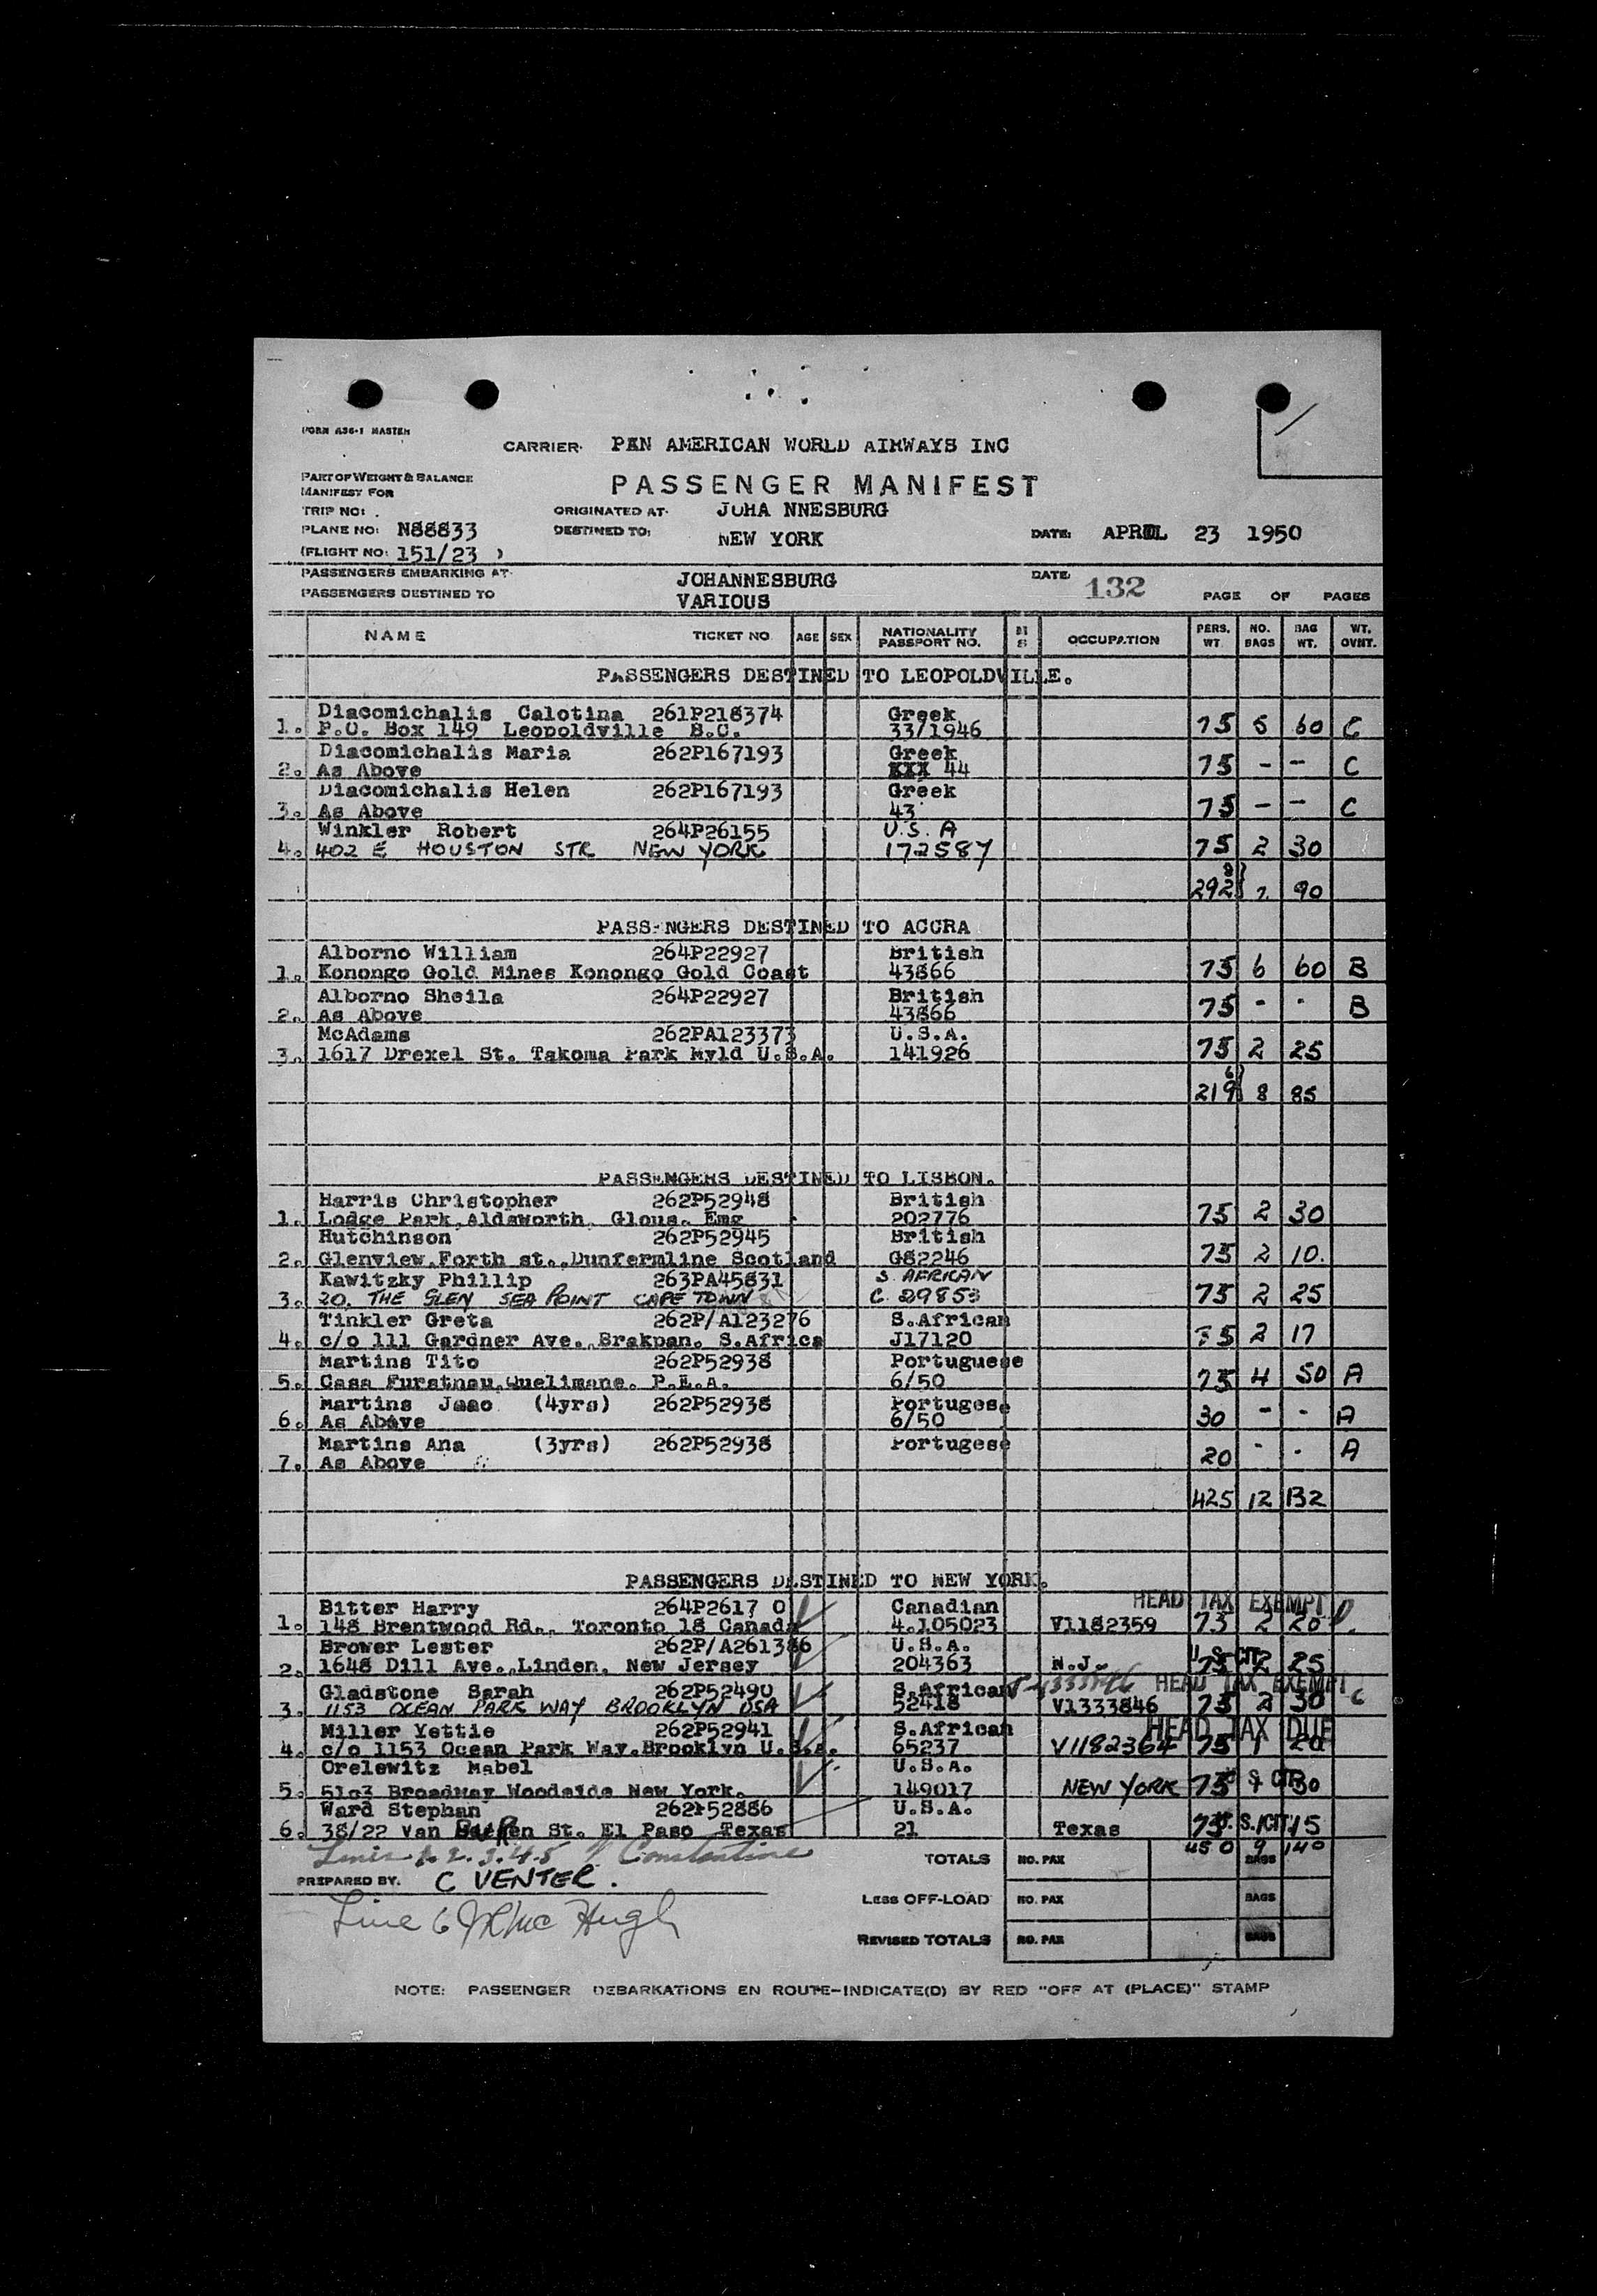 FORM A36-1 MASTER
CARRIER: PAN AMERICAN WORLD AIRWAYS INC
PART OF WEIGHT & BALANCE
MANIFEST FOR
PASSENGER MANIFEST
TRIP NO: .
ORIGINATED AT: JOHA NNESBURG
PLANE NO: N88833
DESTINED TO: NEW YORK
DATE: APRIL 23 1950
(FLIGHT NO: 151/23 )
PASSENGERS EMBARKING AT: JOHANNESBURG
DATE: 132
PASSENGERS DESTINED TO VARIOUS
PAGE OF PAGES
NAME TICKET NO AGE SEX NATIONALITY PASSPORT NO. OCCUPATION PERS. WT. NO. BAGS BAG WT. WT. OVNT.
PASSENGERS DESTINED TO LEOPOLDVILLE.
Diacomichalis Calotina 261P218374 Greek
1. P.O. Box 149 Leopoldville B.C. 33/1946 75 5 60 C
Diacomichalis Maria 262P167193 Greek
2. As Above XXX 44 75 - - C
Diacomichalis Helen 262P167193 Greek
3. As Above 43 75 - - C
Winkler Robert 264P26155 U.S.A
4. 402 E HOUSTON STR NEW YORK 172587 75 2 30
8
292 7. 90
PASS-NGERS DESTINED TO ACCRA
Alborno William 264P22927 British
1. Konongo Gold Mines Konongo Gold Coast 43866 75 6 60 B
Alborno Sheila 264P22927 British
2. As Above 43866 75 - - B
McAdams 262PA123373 U.S.A.
3. 1617 Drexel St. Takoma Park Myld U.S.A. 141926 75 2 25
6
219 8 85
PASSENGERS DESTINED TO LISBON.
Harris Christopher 262P52948 British
1. Lodge Park,Aldsworth, Glous. Emg 202776 75 2 30
Hutchinson 262P52945 British
2. Glenview,Forth st.,Dunfermline Scotland G82246 75 2 10.
Kawitzky Phillip 263PA45831 S. AFRICAN
3. 20, THE GLEN SEA POINT CAPE TOWN C. 29853 75 2 25
Tinkler Greta 262P/A123276 S.African
4. c/o 111 Gardner Ave., Brakpan, S.Africa J17120 75 2 17
Martins Tito 262P52938 Portuguese
5. Casa Furstnau,Quelimane. P.E.A. 6/50 75 4 50 A
Martins Joao (4yrs) 262P52938 Portugese
6. As Above 6/50 30 - - A
Martins Ana (3yrs) 262P52938 Portugese
7. As Above 20 - - A
425 12 132
PASSENGERS DESTINED TO NEW YORK.
HEAD TAX EXEMPT
Bitter Harry 264P2617 0 Canadian
1. 148 Brentwood Rd., Toronto 18 Canada 4.105023 V1182359 75 2 20
Brower Lester 262P/A261386 U.S.A.
2. 1648 Dill Ave.,Linden, New Jersey 204363 N.J. 75 2 25
U.S. CIT.
HEAD TAX EXEMPT
Gladstone Sarah 262P52490 S.African
3. 1153 OCEAN PARK WAY BROOKLYN USA 52418 V1333846 75 2 30
HEAD TAX DUE
Miller Yettie 262P52941 S.African
4. c/o 1153 Ocean Park Way,Brooklyn U.S.A. 65237 V1182364 75 1 20
Orelewitz Mabel U.S.A.
5. 5103 Broadway Woodside New York. 149017 NEW YORK 75 30
S CIT.
Ward Stephan 262P52886 U.S.A.
6. 38/22 Van Buren St. El Paso Texas 21 Texas 75 1 15
U.S. CIT.
450 9 140
Lines 1. 2. 3. 4. 5 Constantine
TOTALS NO. PAX BAGS
PREPARED BY. C VENTER.
LESS OFF-LOAD NO. PAX BAGS
Line 6 McHugh
REVISED TOTALS NO. PAX BAGS
NOTE: PASSENGER DEBARKATIONS EN ROUTE-INDICATE(D) BY RED "OFF AT (PLACE)" STAMP